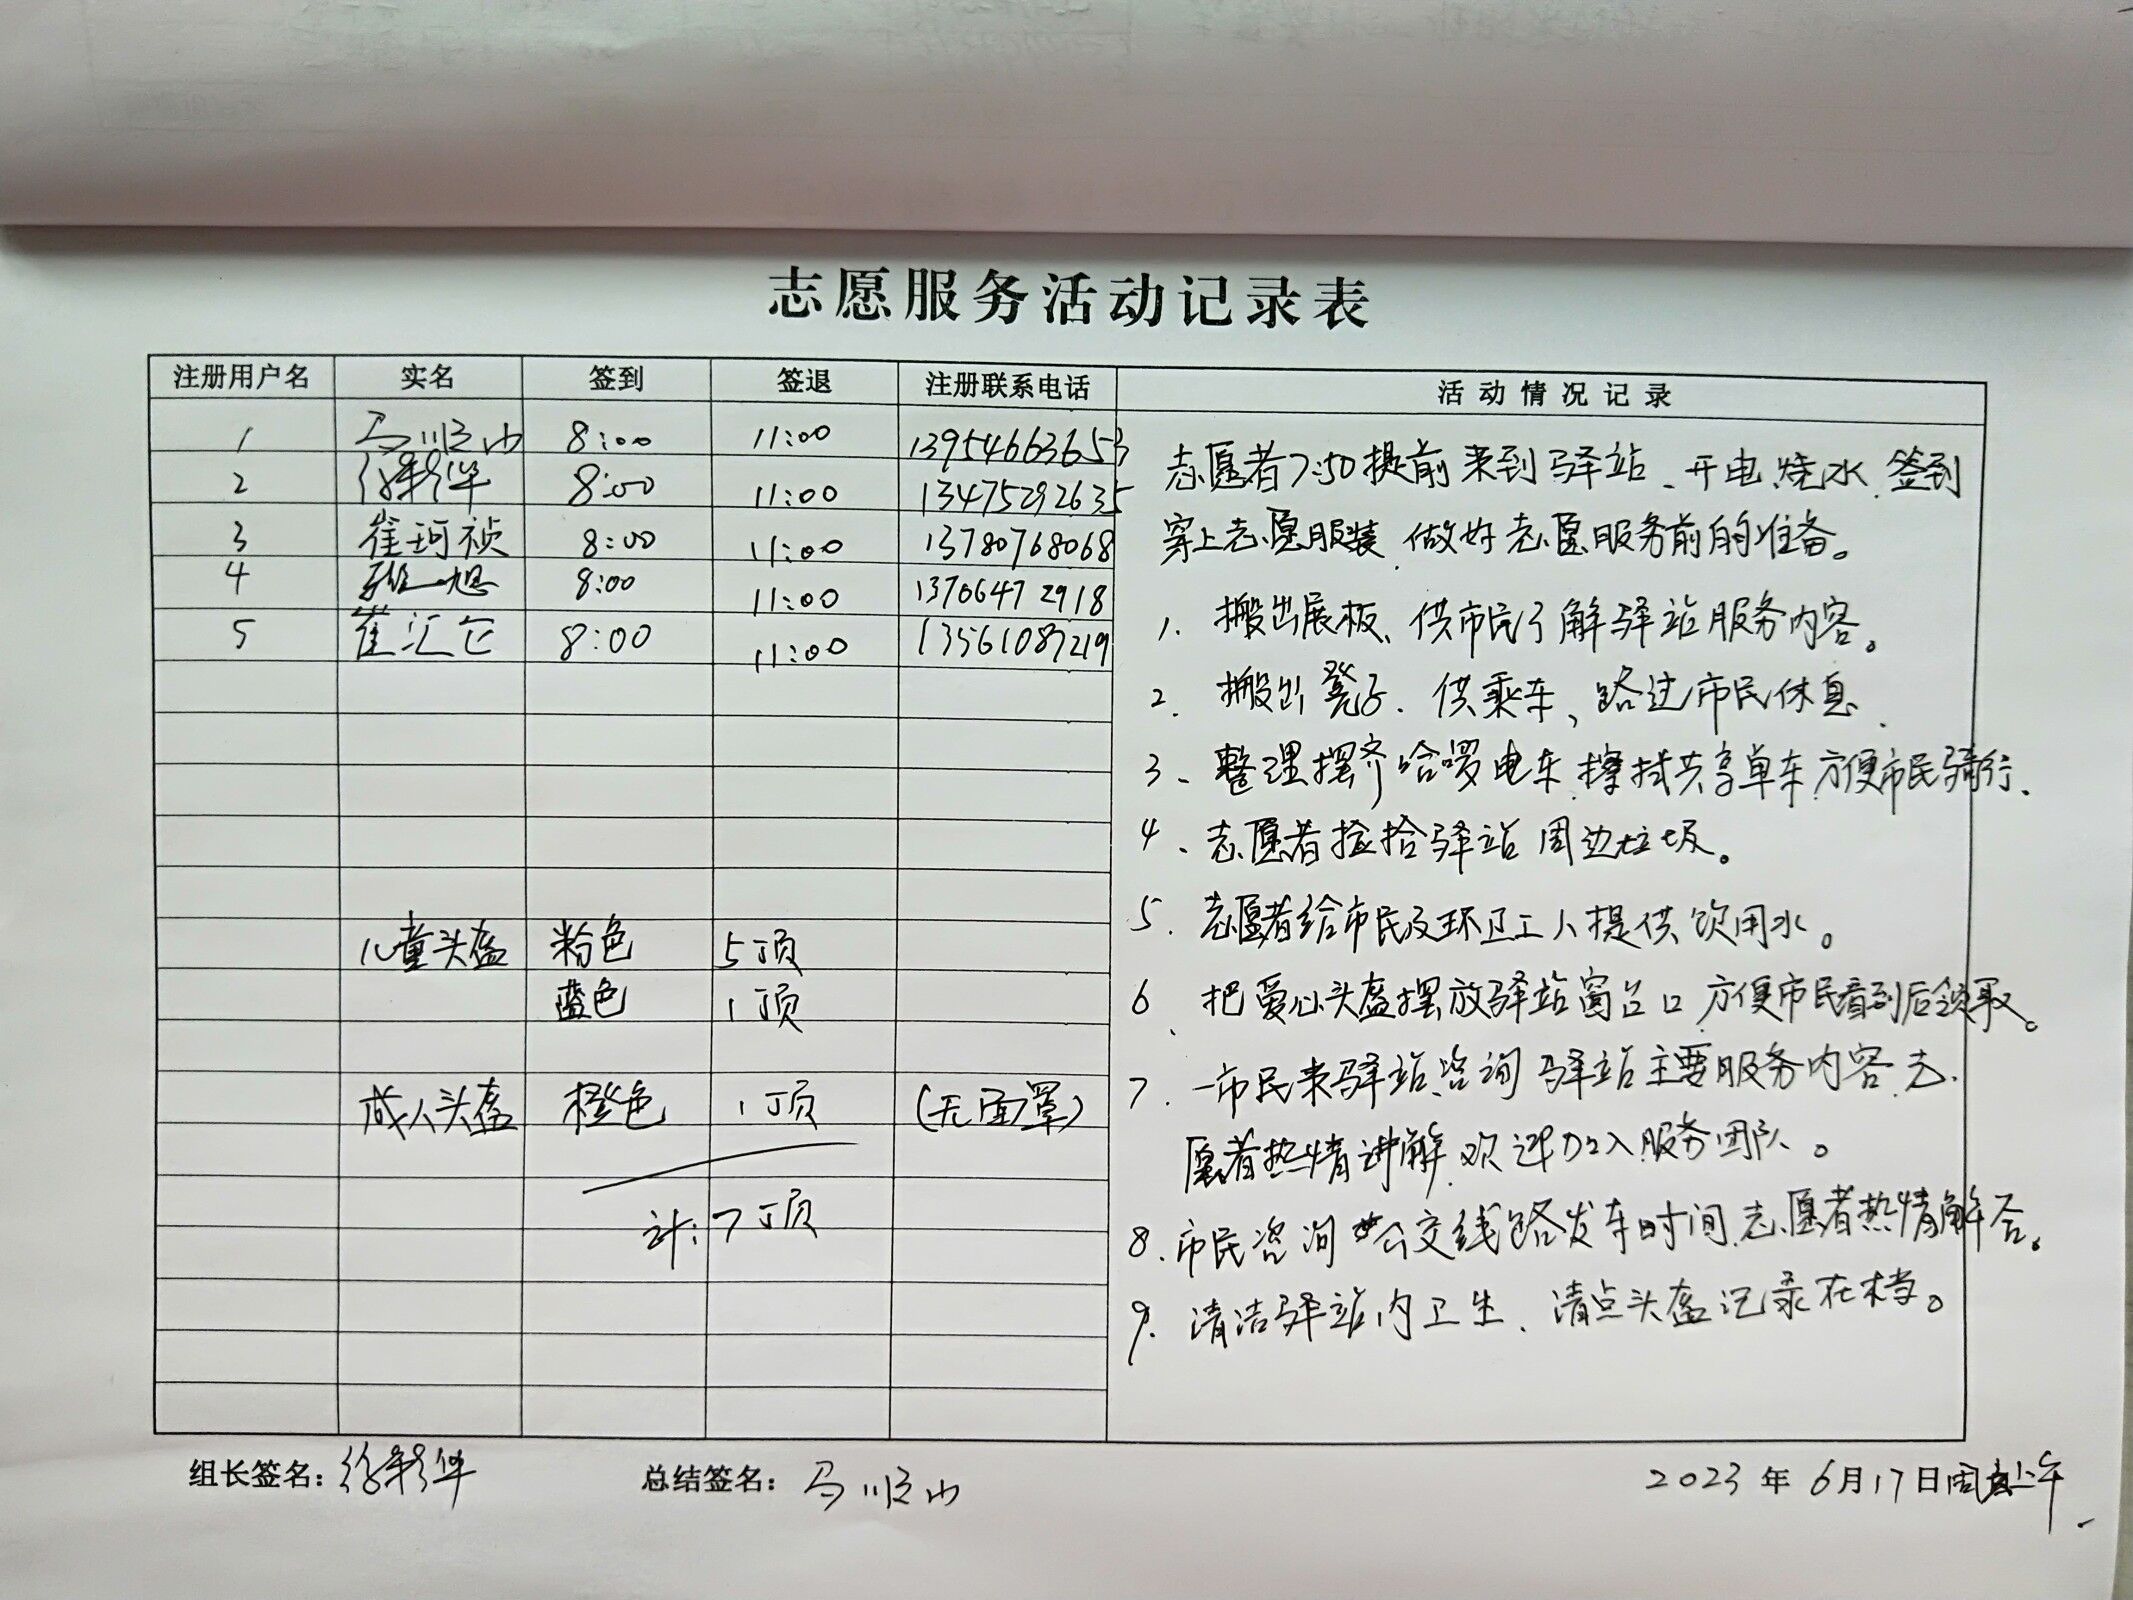 志愿服务活动记录表
注册用户名 实名 签到 签退 注册联系电话 活动情况记录
1 马顺山 8:00 11:00 13954663653
2 徐彩华 8:00 11:00 13475292635
3 崔珂祯 8:00 11:00 13780768068
4 旭 8:00 11:00 13706472918
5 崔汇仁 8:00 11:00 13561087219
儿童头盔 粉色 5顶
蓝色 1顶
成人头盔 橙色 1顶 (无面罩)
计:7顶
志愿者7:50提前来到驿站、开电、烧水、签到
穿上志愿服装、做好志愿服务前的准备。
1、搬出展板、供市民了解驿站服务内容。
2、搬出凳子、供乘车、路过市民休息、
3、整理摆齐哈啰电车、擦拭共享单车、方便市民骑行、
4、志愿者捡拾驿站周边垃圾。
5、志愿者给市民及环卫工人提供饮用水。
6、把爱心头盔摆放驿站窗台口、方便市民看到后领取。
7、一市民来驿站咨询驿站主要服务内容、志
愿者热情讲解、欢迎加入服务团队。
8、市民咨询公交线路发车时间、志愿者热情解答。
9、清洁驿站内卫生、清点头盔记录在档。
组长签名:徐彩华 总结签名:马顺山 2023年6月17日周六上午